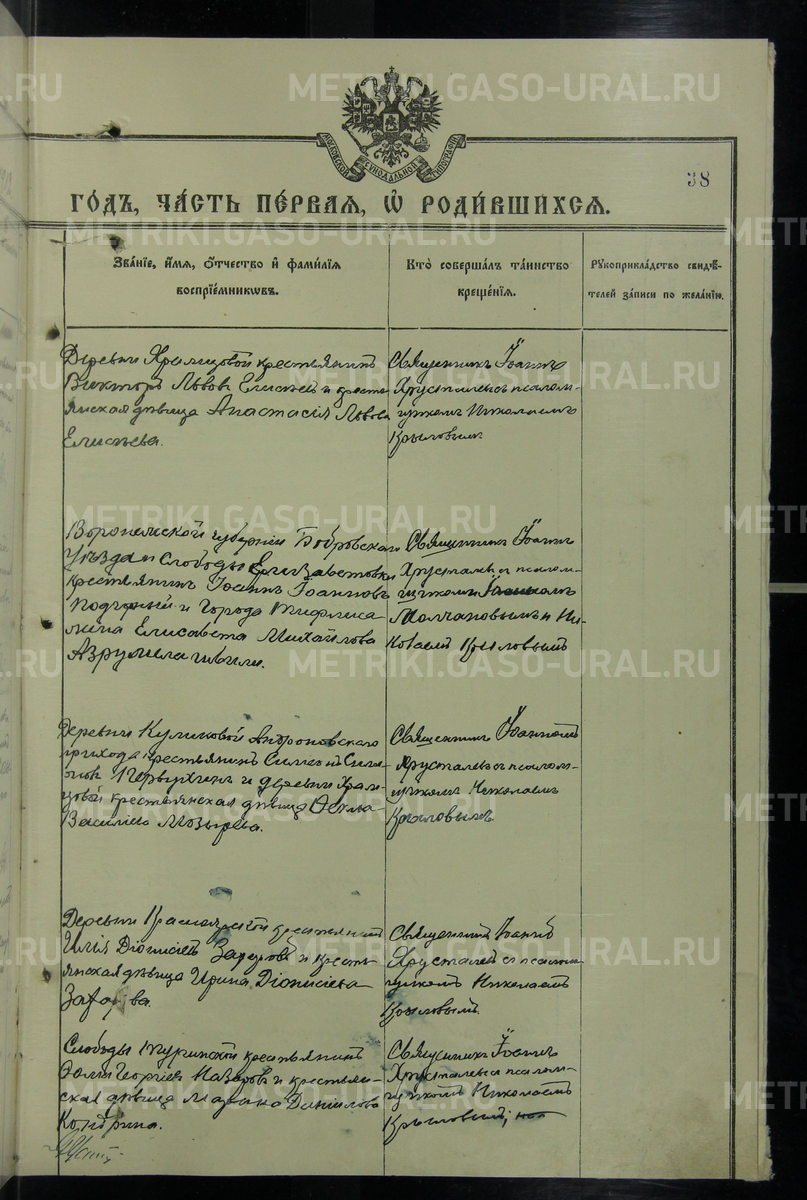 МОСКОВСКОЙ СѴНОДАЛЬНОЙ ТИПОГРАФІИ
38
ГО́ДЪ, ЧА́СТЬ ПЕ́РВАѦ, Ѡ҆ РОДИ́ВШИХСѦ.
Зва́нїе, и҆́мѧ, ѻ҆́тчество и҆ фами́лїѧ
воспрїе́мникѡвъ.
Кто̀ соверша́лъ та́инство
креще́нїѧ.
Рꙋкоприкла́дство свидѣ́-
телей за́писи по жела́нїю.
Деревни Храмцовой крестьянинъ
Викторъ Львовъ Елисѣевъ и кресть-
янская дѣвица Анастасія Львова
Елисѣева.
Священникъ Іоаннъ
Хрусталевъ с псалом-
щикомъ Николаемъ
Крыловымъ
Воронежской губерніи Бобровскаго
уѣзда и Слободы Елизаветовки
крестьянинъ Іоаннъ Іоанновъ
Подгорный и города Тифлиса
Елисавета Михайлова
Священникъ Іоаннъ
Хрусталевъ с псалом-
щикомъ
Молчановымъ и Ни-
колаемъ Крыловымъ
Деревни Куликовой Антроновскаго
прихода крестьянинъ Симе-
оновъ Первухинъ и деревни Храм-
цовой крестьянская дѣвица Ѳекла
Василіева Мозырева.
Священникъ Іоанномъ
Хрусталевъ с псалом-
щикомъ Николаемъ
Крыловымъ
Деревни Красноярской крестьянинъ
Илія Діонисіевъ Захаровъ и кресть-
янская дѣвица Ирина Діонисіева
Захарова.
Священникъ Іоаннъ
Хрусталевъ с псалом-
щикомъ Николаемъ
Крыловымъ.
Слободы Туринской крестьянинъ
Ѳома Георгіевъ Назаровъ и крестьян-
ская дѣвица Марина Даниилова
Кондрина.
Священникъ Іоаннъ
Хрусталевъ с псалом-
щикомъ Николаемъ
Крыловымъ
METRIKI.GASO-URAL.RU